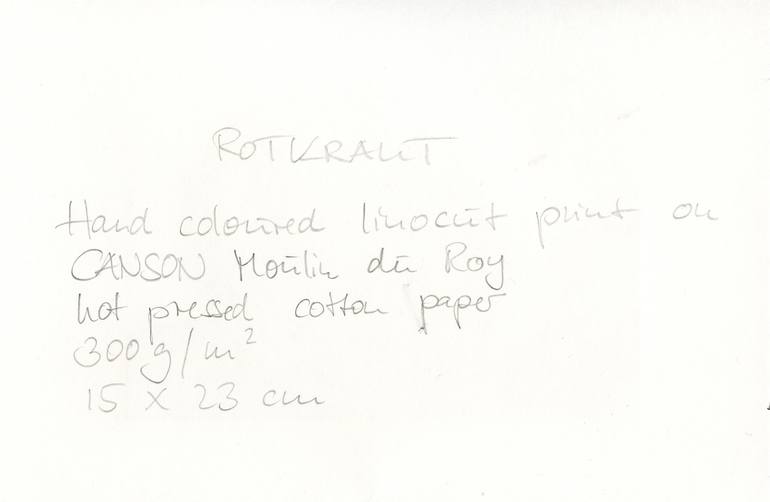 ROTKRAUT
Hand coloured linocut print on
CANSON Moulin du Roy
hot pressed cotton paper
300 g/m²
15 x 23 cm